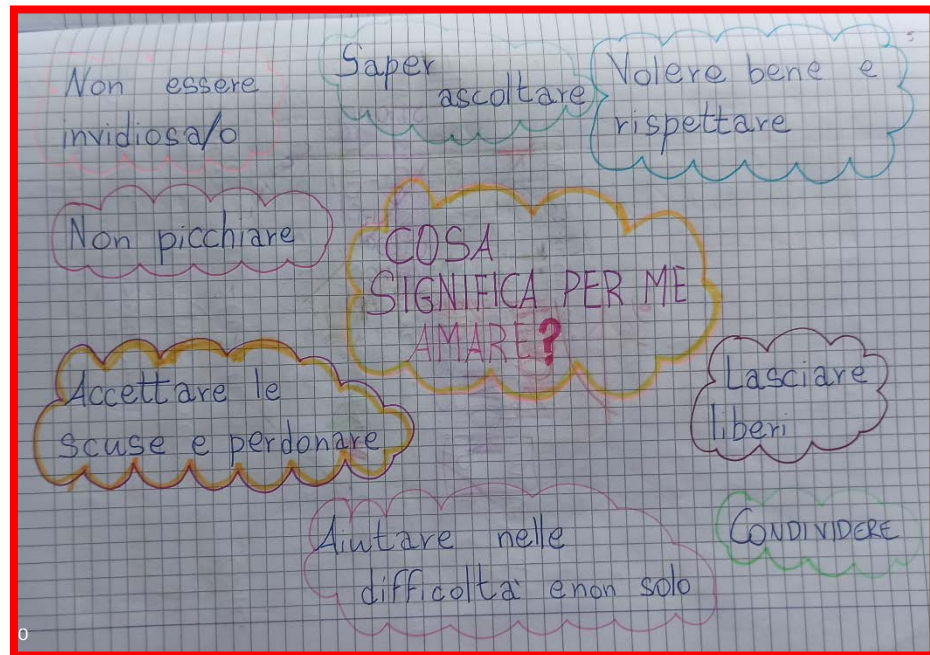 Non essere
invidiosa/o
Saper
ascoltare
Volere bene e
rispettare
Non picchiare
COSA
SIGNIFICA PER ME
AMARE?
Accettare le
scuse e perdonare
Lasciare
liberi
Aiutare nelle
difficoltà e non solo
CONDIVIDERE
0